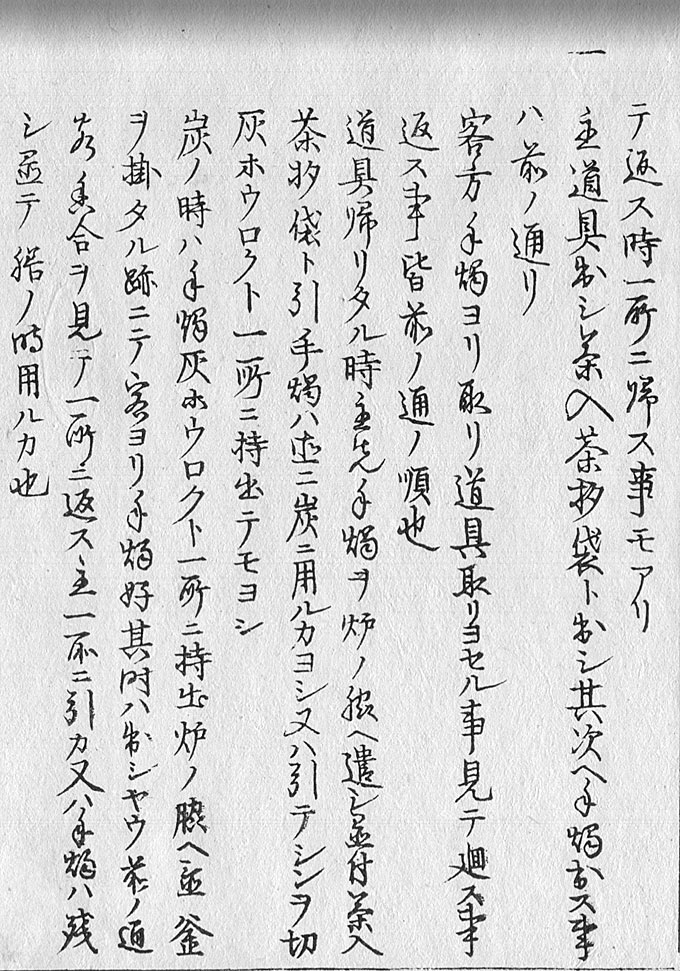 テ返ス時一所ニ帰ス事モアリ
一
主道具出シ茶入茶杓袋ト出シ其次ヘ手燭出ス事
ハ前ノ通リ
客方手燭ヨリ取リ道具取リヨセル事見テ廻ス事
返ス事皆前ノ通ノ順也
道具帰リタル時主先手燭ヲ炉ノ脇ヘ遣シ置付茶入
茶杓袋ト引手燭ハ直ニ炭ニ用ルカヨシ又ハ引テシンヲ切
灰ホウロクト一所ニ持出テモヨシ
炭ノ時ハ手燭灰ホウロクト一所ニ持出炉ノ脇ヘ置釜
ヲ掛タル跡ニテ客ヨリ手燭好其時ハ出シヤウ前ノ通
客香合ヲ見テ一所ニ返ス主一所ニ引カ又ハ手燭ハ残
シ置テ後ノ時用ルカ也